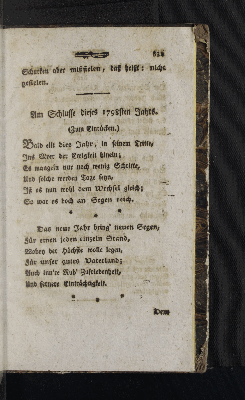 Schurken aber mißfielen, daß heißt: nicht
gefielen.
Am Schlusse dieses 1798sten Jahrs.
(Zum Einrücken.)
Bald eilt dies Jahr, in seinem Tritte,
Ins Meer der Ewigkeit hinein;
Es mangeln nur noch wenig Schritte,
Und solche werden Tage seyn.
Ist es nun wohl dem Wechsel gleich;
So war es doch an Segen reich.
* * *
Das neue Jahr bring' neuen Segen,
Für einen jeden einzeln Stand,
Wobey der Höchste wolle legen,
Für unser gutes Vaterland;
Auch Ruh' Zufriedenheit,
Und fernere Einträchtigkeit.
* * *
Dem